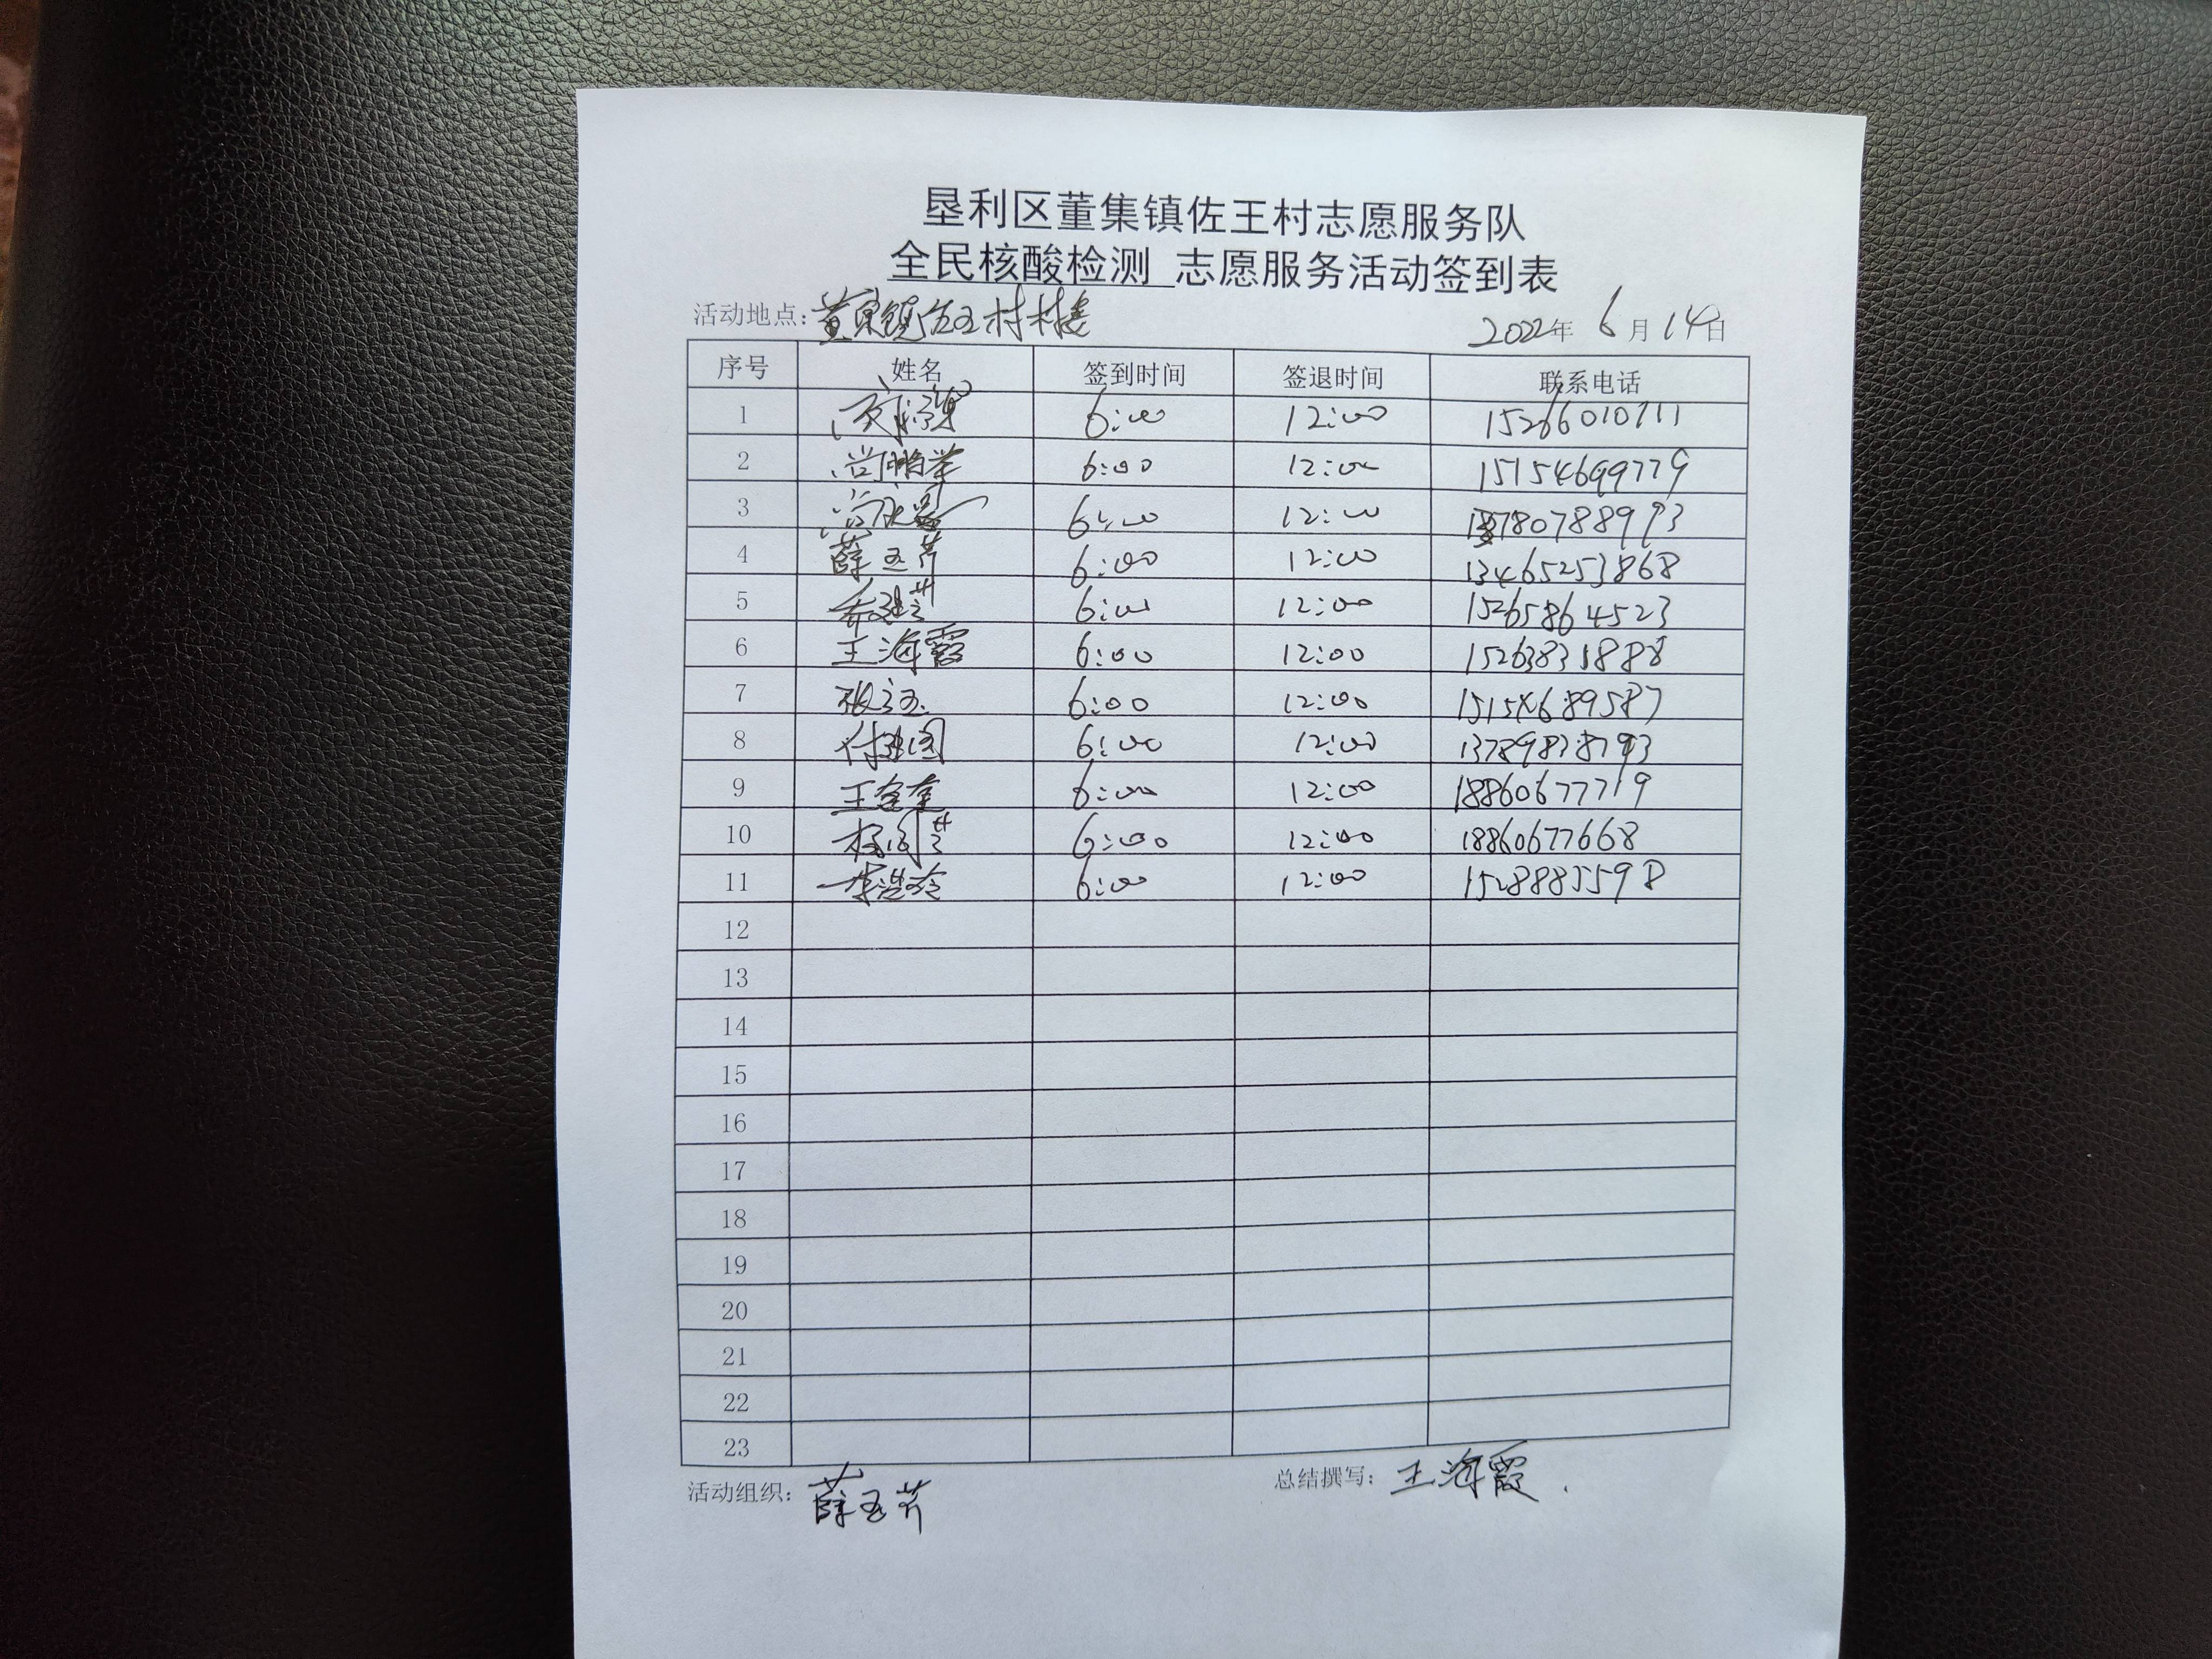 垦利区董集镇佐王村志愿服务队
全民核酸检测 志愿服务活动签到表
活动地点：董集镇佐王村村委 2022年 6月14日
序号 姓名 签到时间 签退时间 联系电话
1 6:00 12:00
2 尚鹏举 6:00 12:00 15154699779
3 6:00 12:00
4 薛玉芹 6:00 12:00 13465253868
5 6:00 12:00 15265864523
6 王海霞 6:00 12:00 15263831888
7 6:00 12:00 15154689587
8 付建国 6:00 12:00 13789838793
9 王金奎 6:00 12:00 18860677719
10 6:00 12:00 18860677668
11 6:00 12:00 1528885598
12
13
14
15
16
17
18
19
20
21
22
23
活动组织：薛玉芹 总结撰写：王海霞.